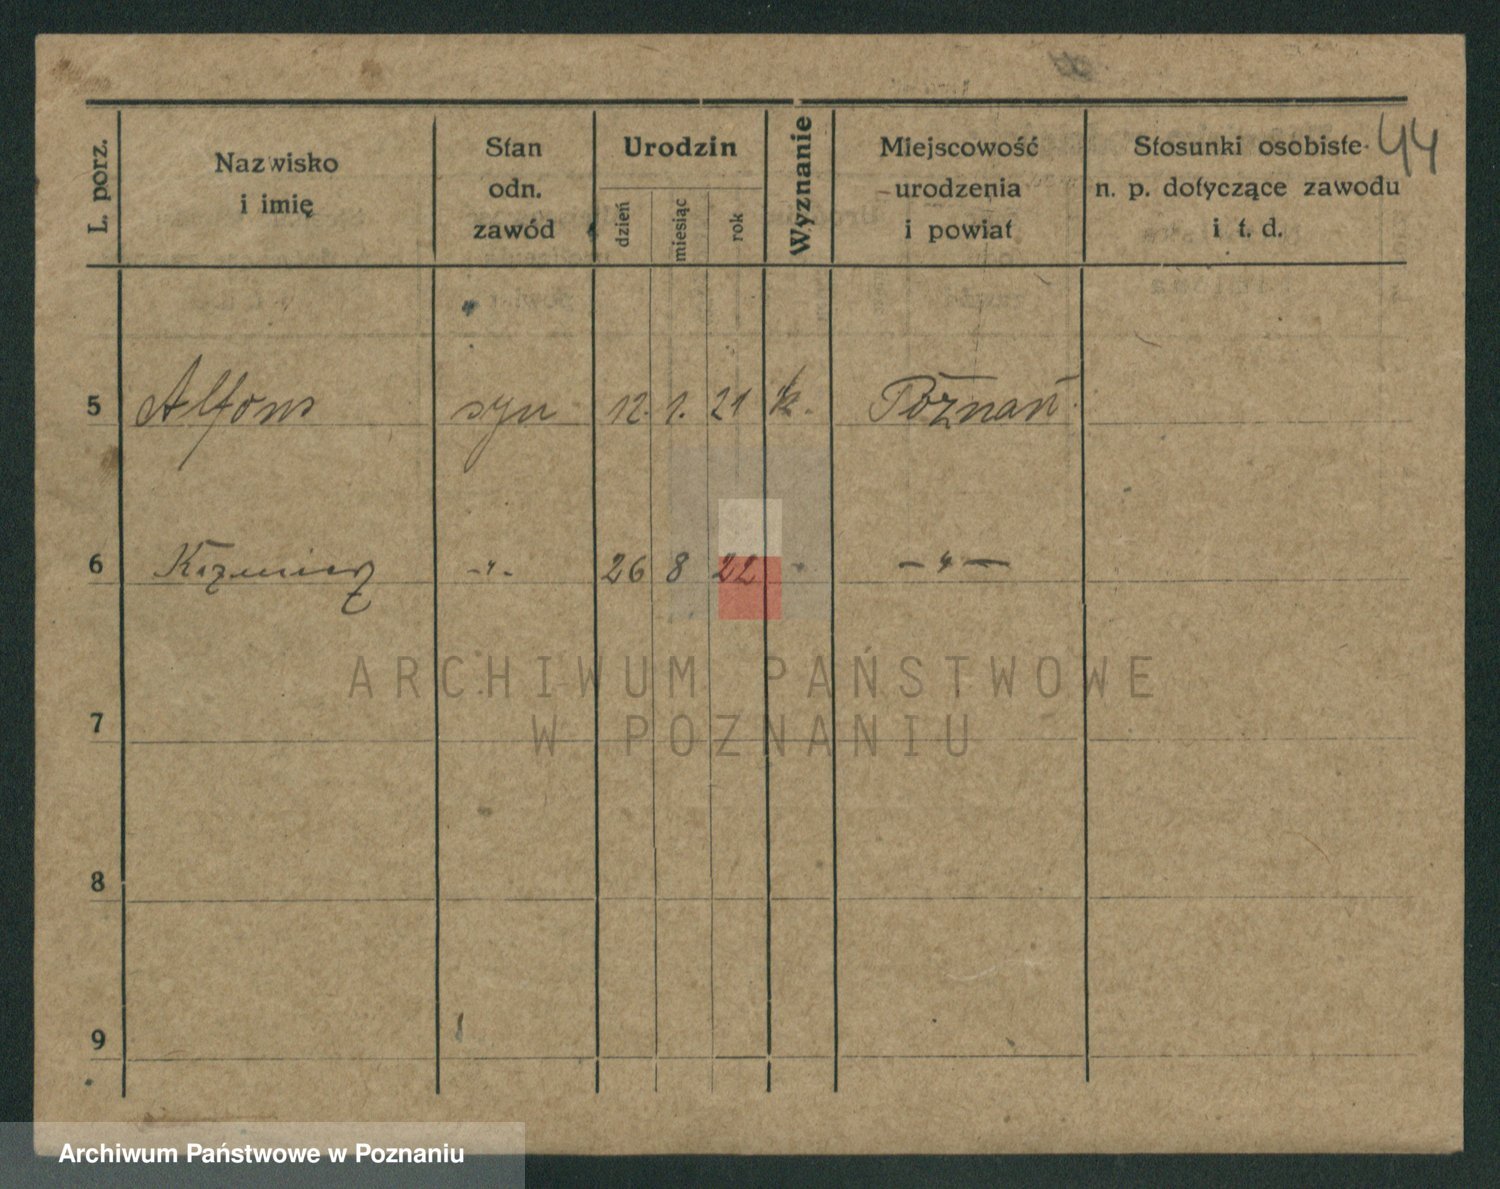 44
L. porz. Nazwisko i imię Stan odn. zawód Urodzin dzień miesiąc rok Wyznanie Miejscowość urodzenia i powiat Stosunki osobiste n. p. dotyczące zawodu i t. d.
5 Alfons syn 12. 1. 21 k. Poznań
6 Kazimierz -"- 26 8 22 " -"-
7
8
9
ARCHIWUM PAŃSTWOWE
W POZNANIU
Archiwum Państwowe w Poznaniu